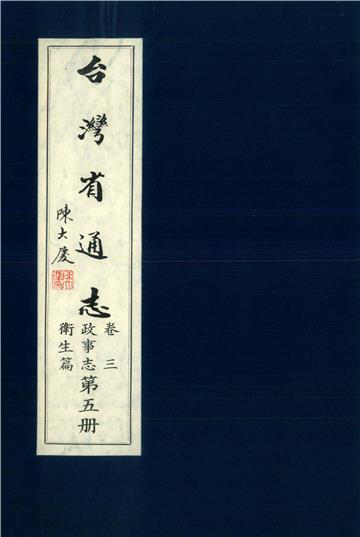 台灣省通志
陳大慶
卷三
政事志
衛生篇
第五册